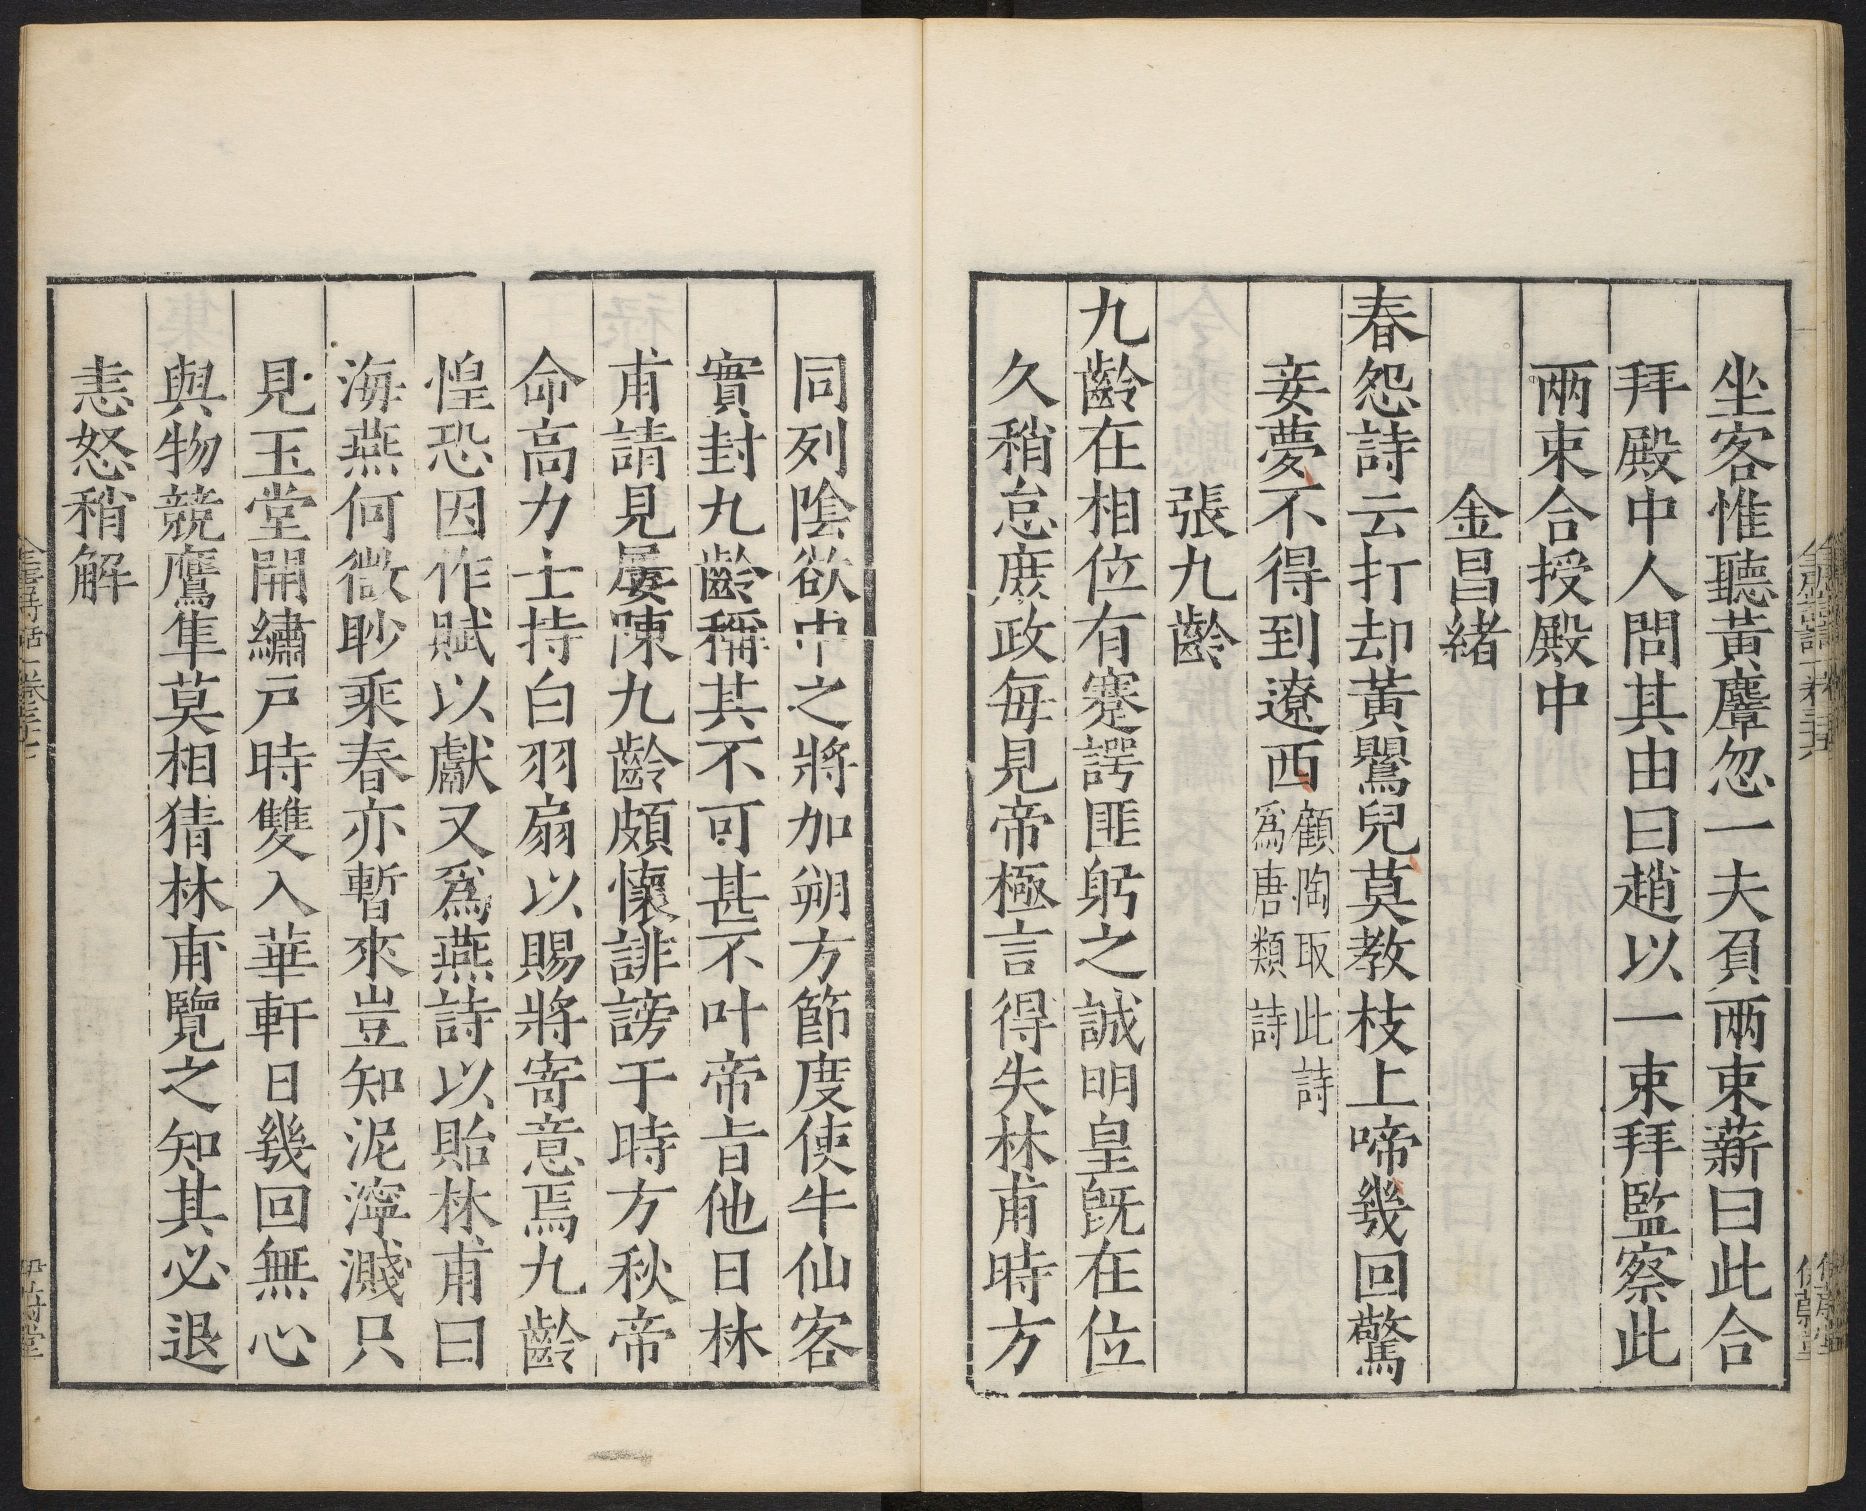 坐客惟聽黃麞忽一夫負兩束薪曰此合
拜殿中人問其由曰趙以一束拜監察此
兩束合授殿中
金昌緒
春怨詩云打却黃鸎兒莫教枝上啼幾回驚
妾夢不得到遼西顧陶取此詩
爲唐類詩
張九齡
九齡在相位有蹇諤匪躬之誠明皇旣在位
久稍怠庻政每見帝極言得失林甫時方
同列陰欲中之將加朔方節度使牛仙客
實封九齡稱其不可甚不叶帝旨他日林
甫請見屢陳九齡頗懷誹謗于時方秋帝
命高力士持白羽扇以賜將寄意焉九齡
惶恐因作賦以獻又爲燕詩以貽林甫曰
海燕何微眇乘春亦暫來豈知泥濘濺只
見玉堂開繡戶時雙入華軒日幾回無心
與物競鷹隼莫相猜林甫覽之知其必退
恚怒稍解